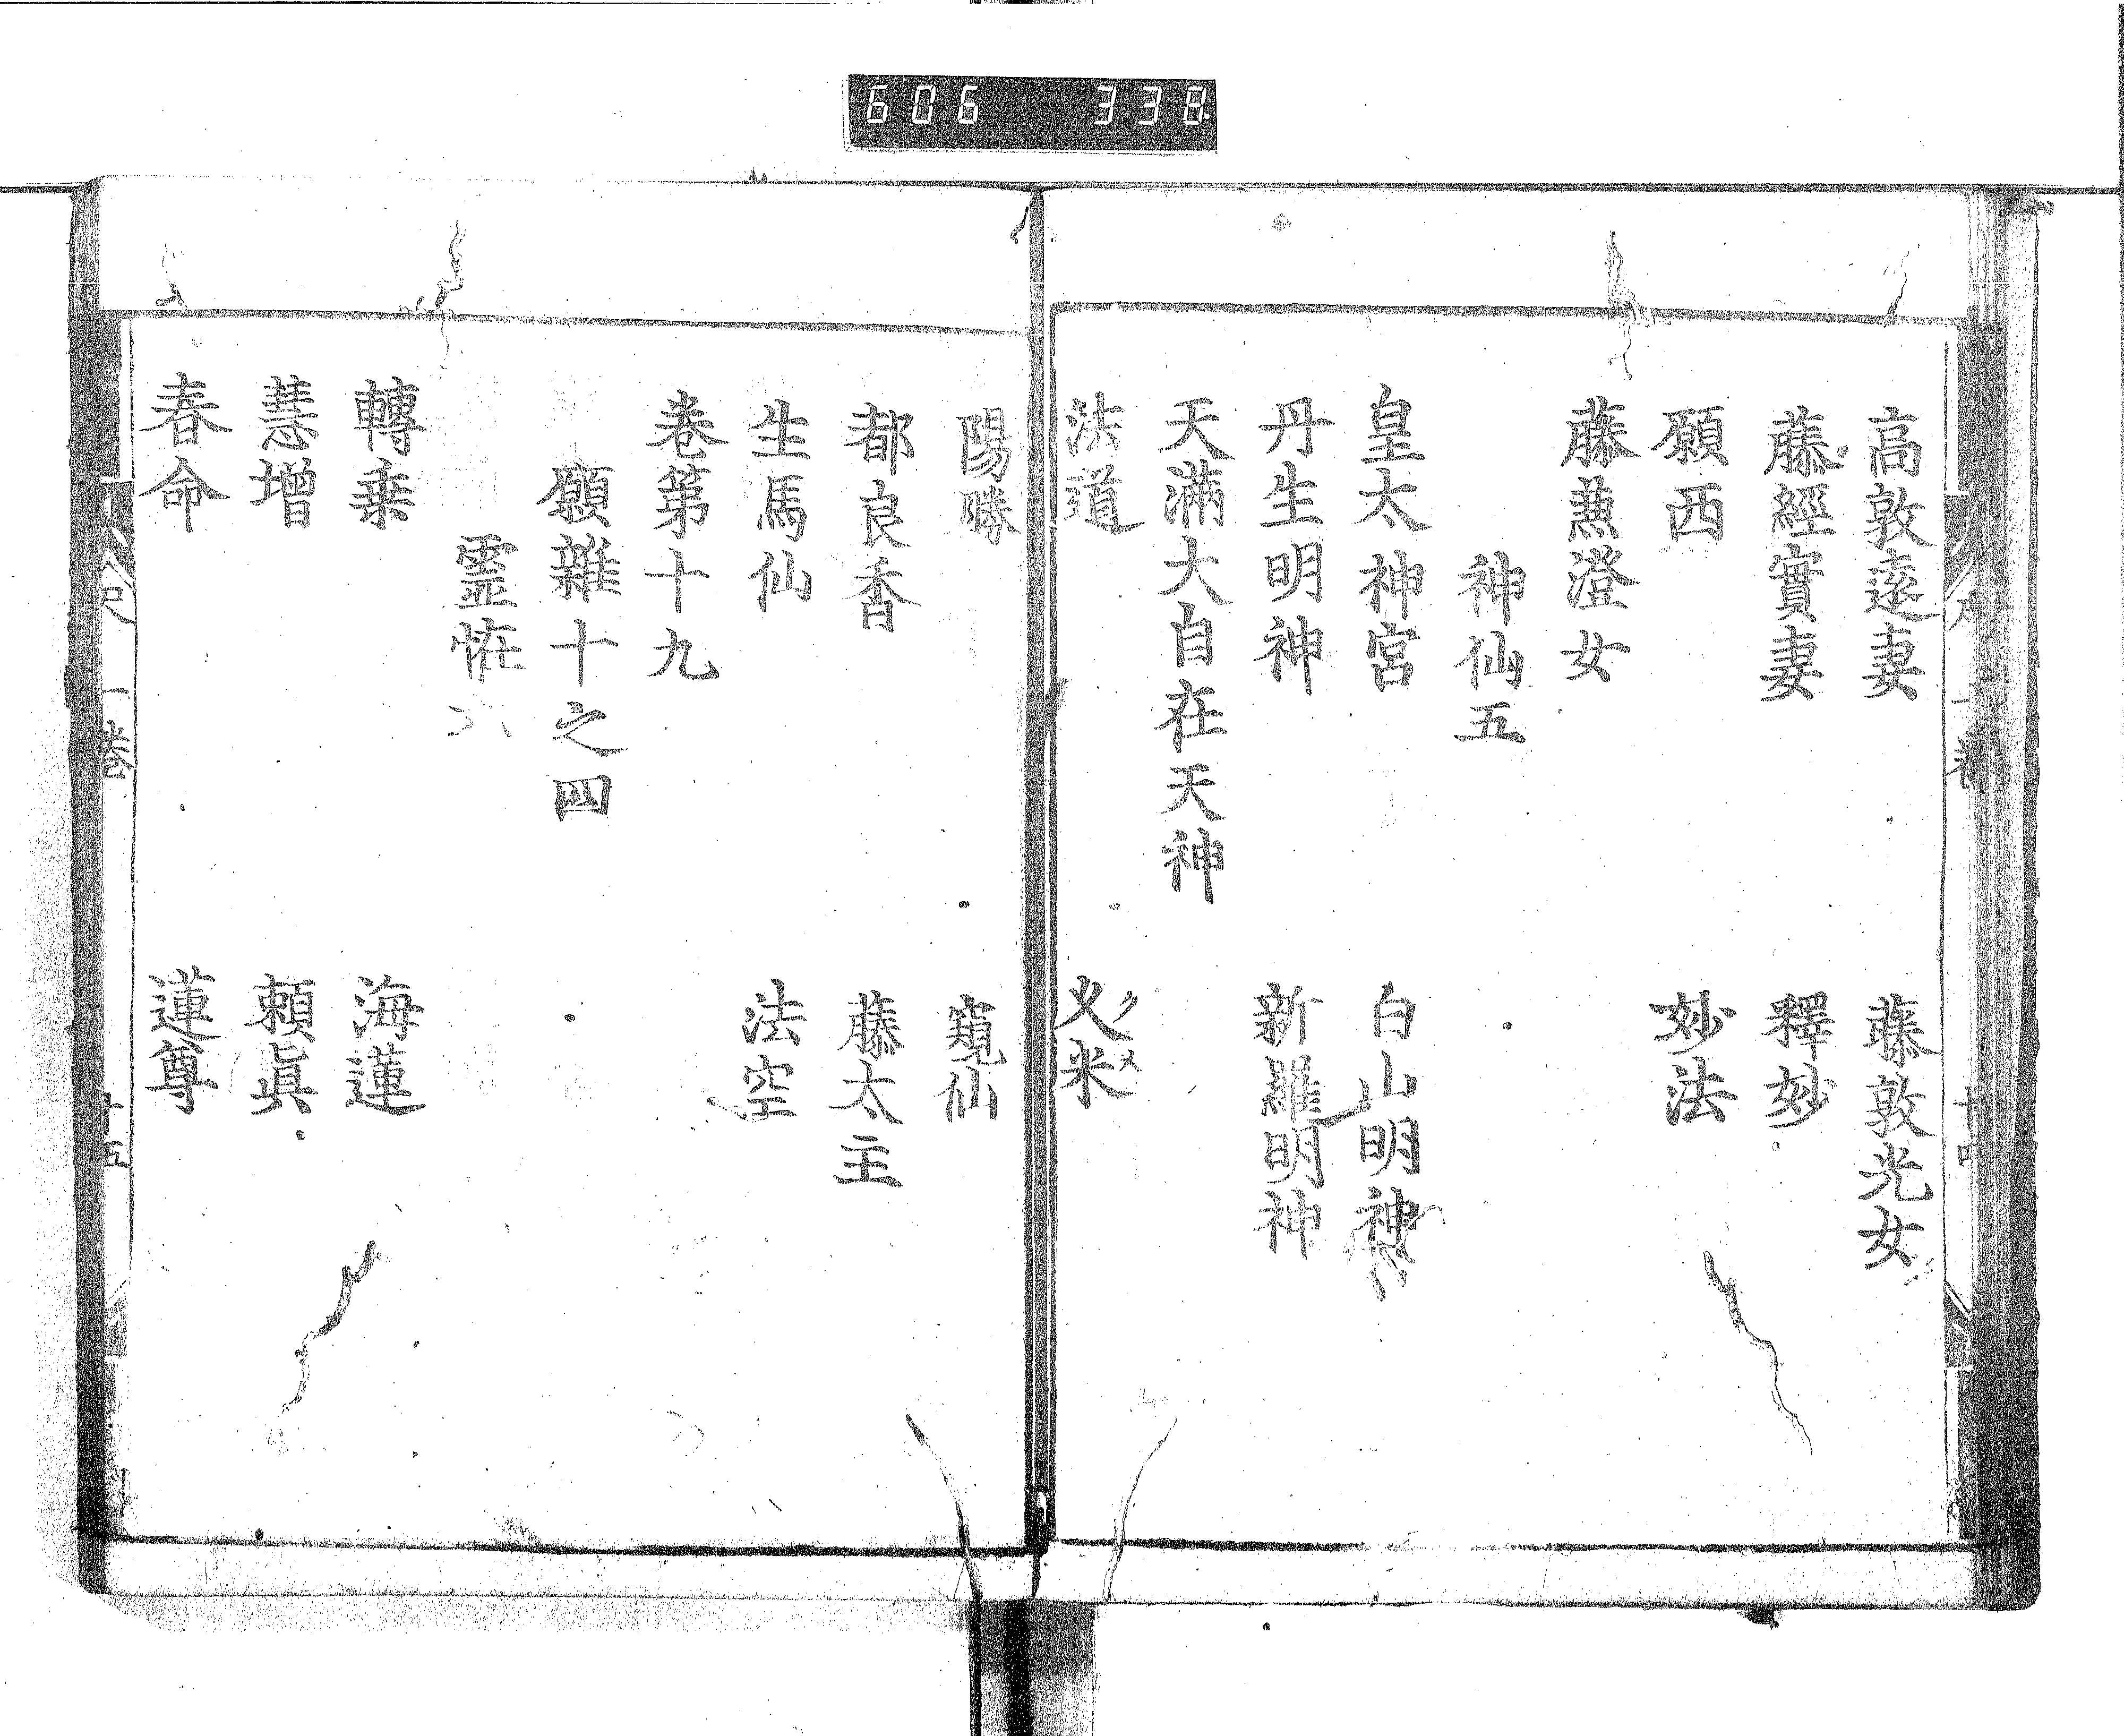 606 338
高敦遠妻 藤敦光女
藤經實妻 釋妙
願西 妙法
藤兼澄女
神仙五
皇太神宮 白山明神
丹生明神 新羅明神
天滿大自在天神
法道 久米
陽勝 窺仙
都良香 藤太主
生馬仙 法空
卷第十九
願雜十之四
靈恠六
轉乘 海蓮
慧增 賴眞
春命 蓮尊
一卷 十五